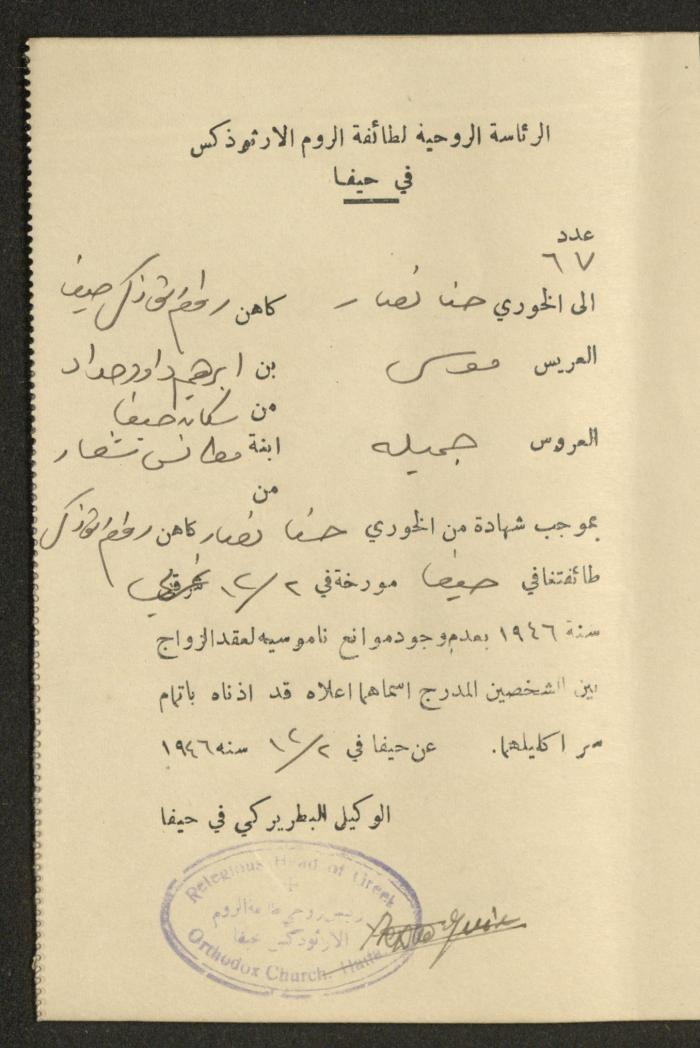 الرئاسة الروحية لطائفة الروم الارثوذكس
في حيفا
عدد
٦٧
الى الخوري حنا نصار كاهن روم ارثوذكس حيفا
العريس موسى بن ابرهيم داود حداد
من سكان حيفا
العروس جميله ابنة شعار
من
بموجب شهادة من الخوري حنا نصار كاهن روم ارثوذكس
طائفتنا في حيفا مورخة في ١٢/٢
سنة ١٩٤٦ بعدم وجود موانع ناموسيه لعقد الزواج
بين الشخصين المدرج اسماهما اعلاه قد اذناه باتمام
سر اكليلهما. عن حيفا في ١٢/٢ سنه ١٩٤٦
الوكيل البطريركي في حيفا
Relegious Head of Greek
رئيس روحي طائفة الروم
الارثودكس حيفا
Orthodox Church. Haifa